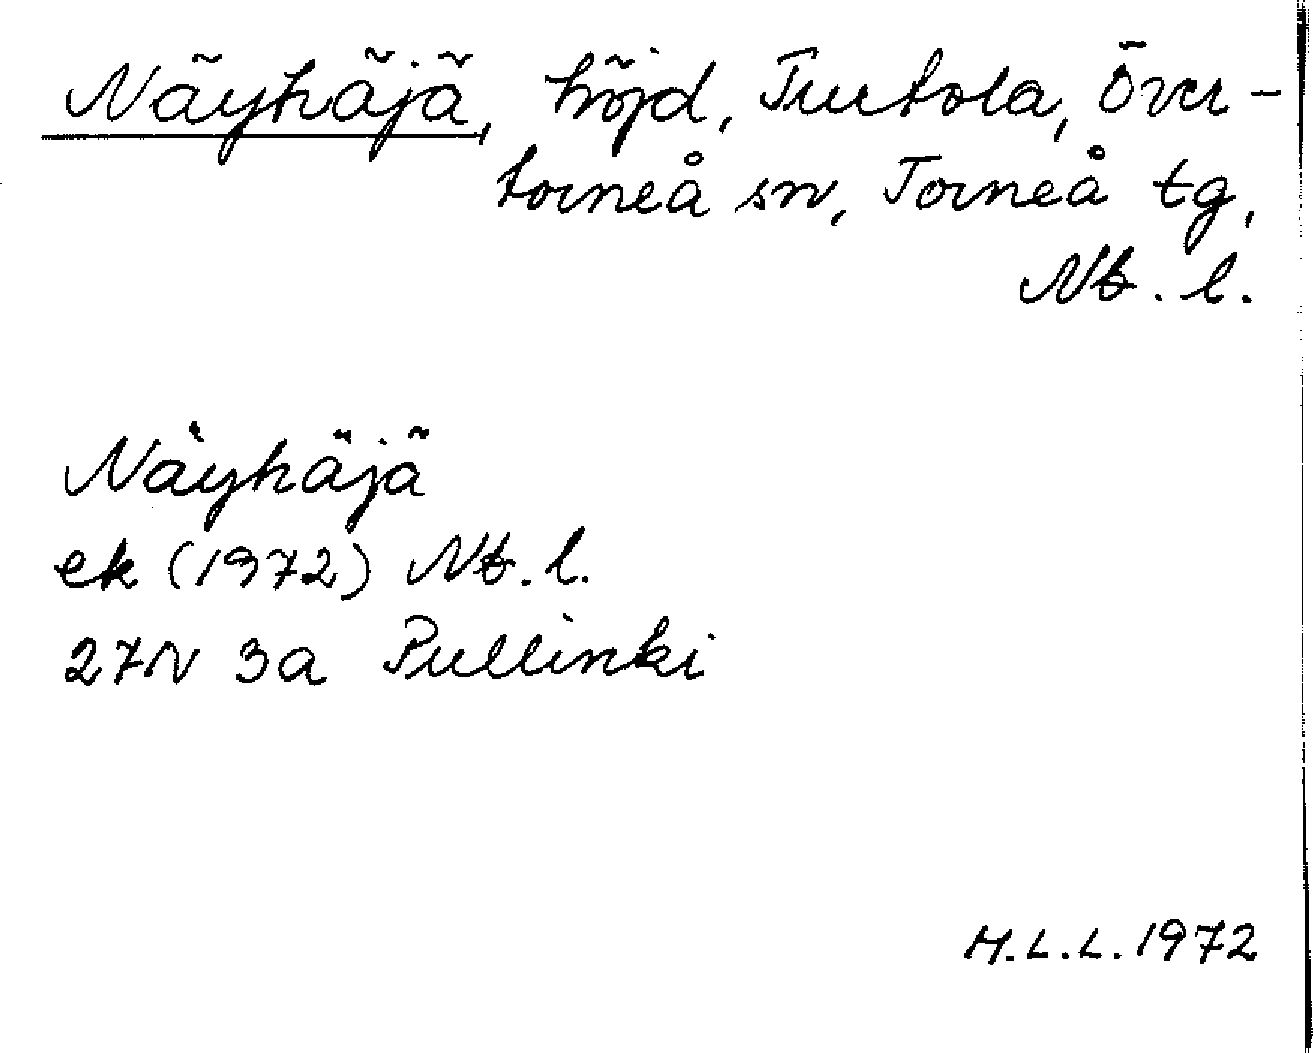 Näyhäjä, höjd, Turtola, Över-
torneå sn, Torneå tg,
Nb. l.
Näyhäjä
ek (1972) Nb. l.
27N 3a Pullinki
H.L.L. 1972